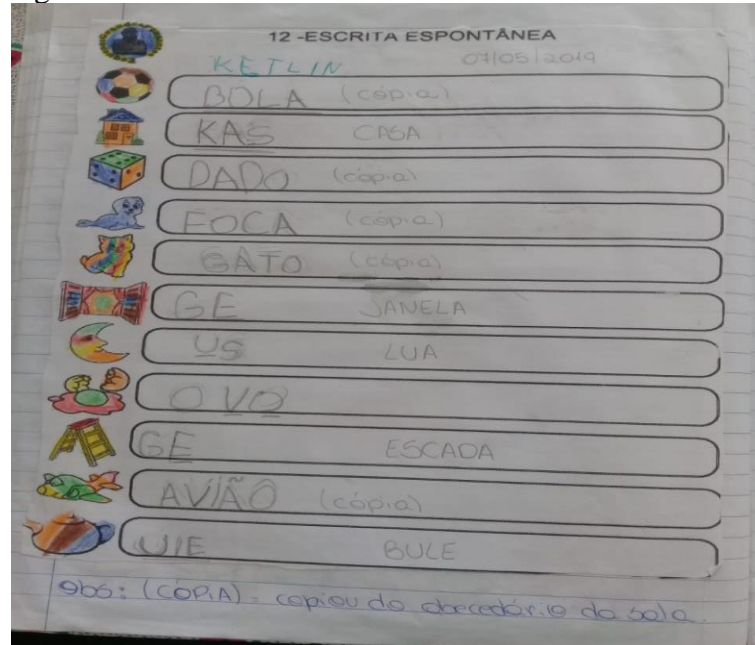 12 -ESCRITA ESPONTÂNEA
KETLIN 07/05/2019
BOLA (cópia)
KAS CASA
DADO (cópia)
FOCA (cópia)
GATO (cópia)
GE JANELA
US LUA
OVO
GE ESCADA
AVIÃO (cópia)
UIE BULE
Obs: (CÓPIA) - copiou do abecedário da sala.